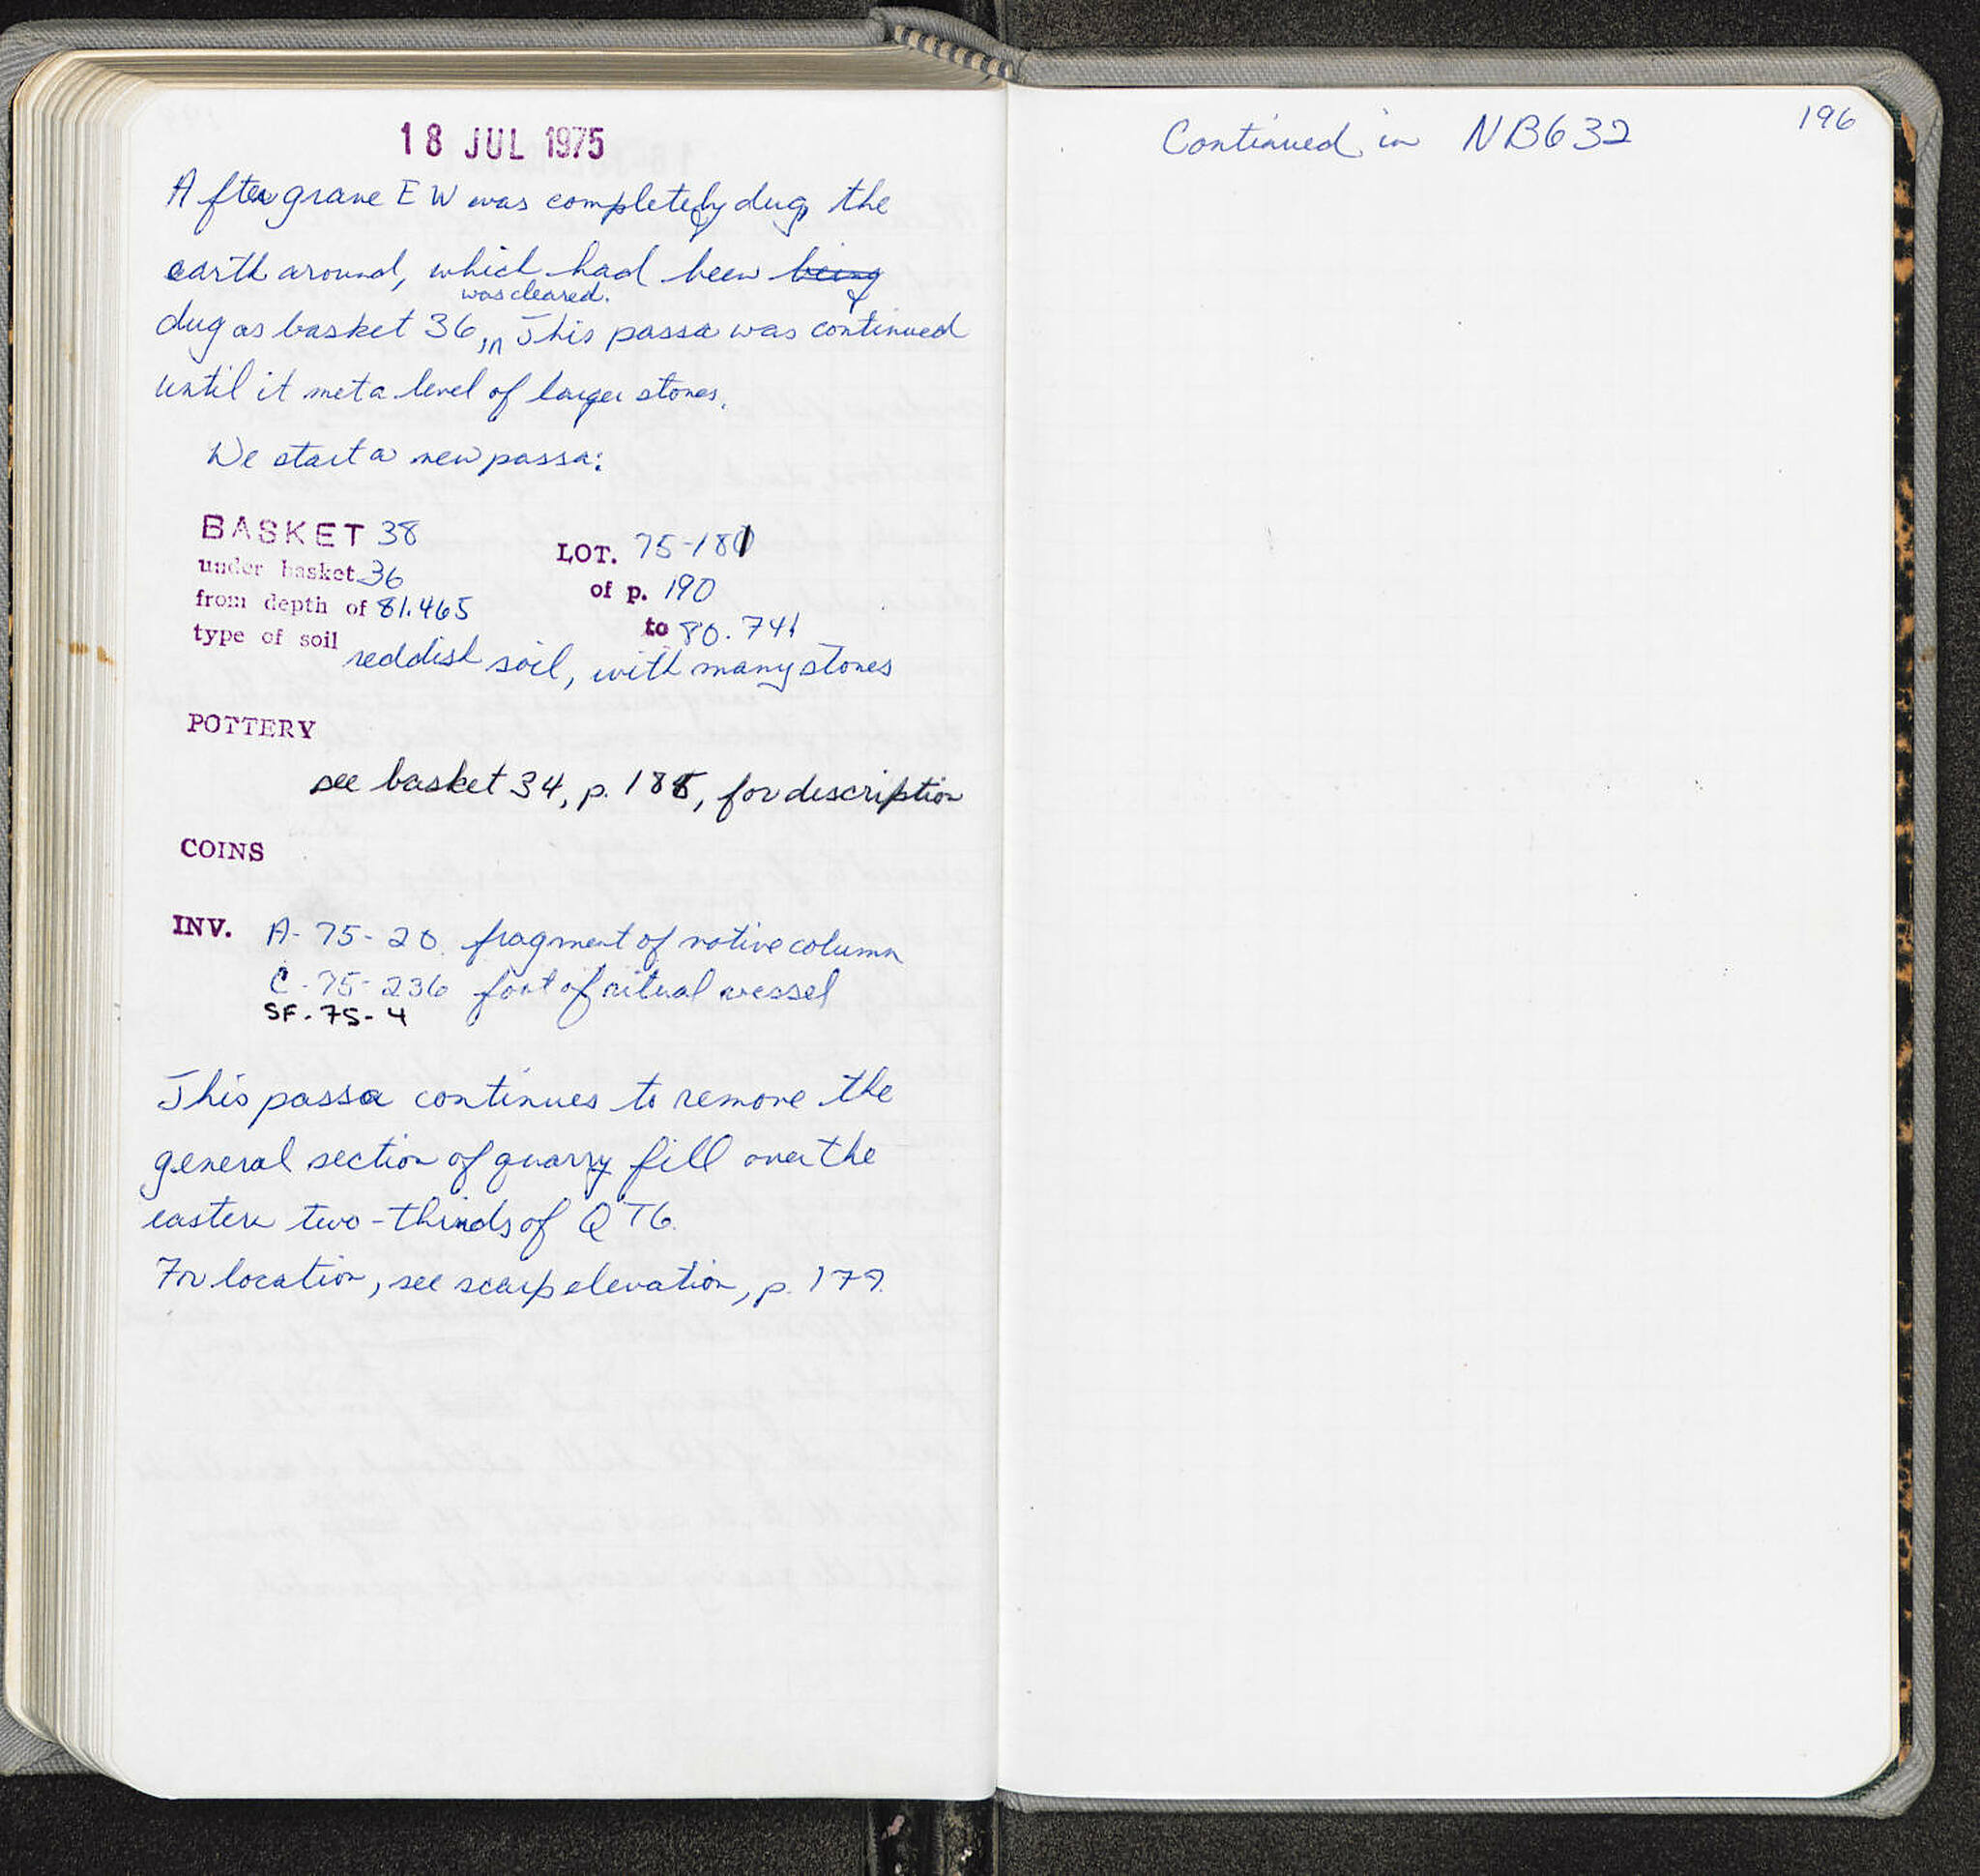 18 JUL 1975
After grave E W was completely dug, the
earth around, which had been being
was cleared.
dug as basket 36, This passa was continued
until it met a level of larger stones.
We start a new passa:
BASKET 38
LOT. 75-181
under basket 36
of p. 190
from depth of 81.465
to 80.741
type of soil reddish soil, with many stones
POTTERY
see basket 34, p. 185, for description
COINS
INV. A-75-20 fragment of votive column
C-75-236 foot of ritual vessel
SF-75-4
This passa continues to remove the
general section of quarry fill over the
eastern two-thirds of QT6.
For location, see scarp elevation, p. 179.
Continued in NB632
196